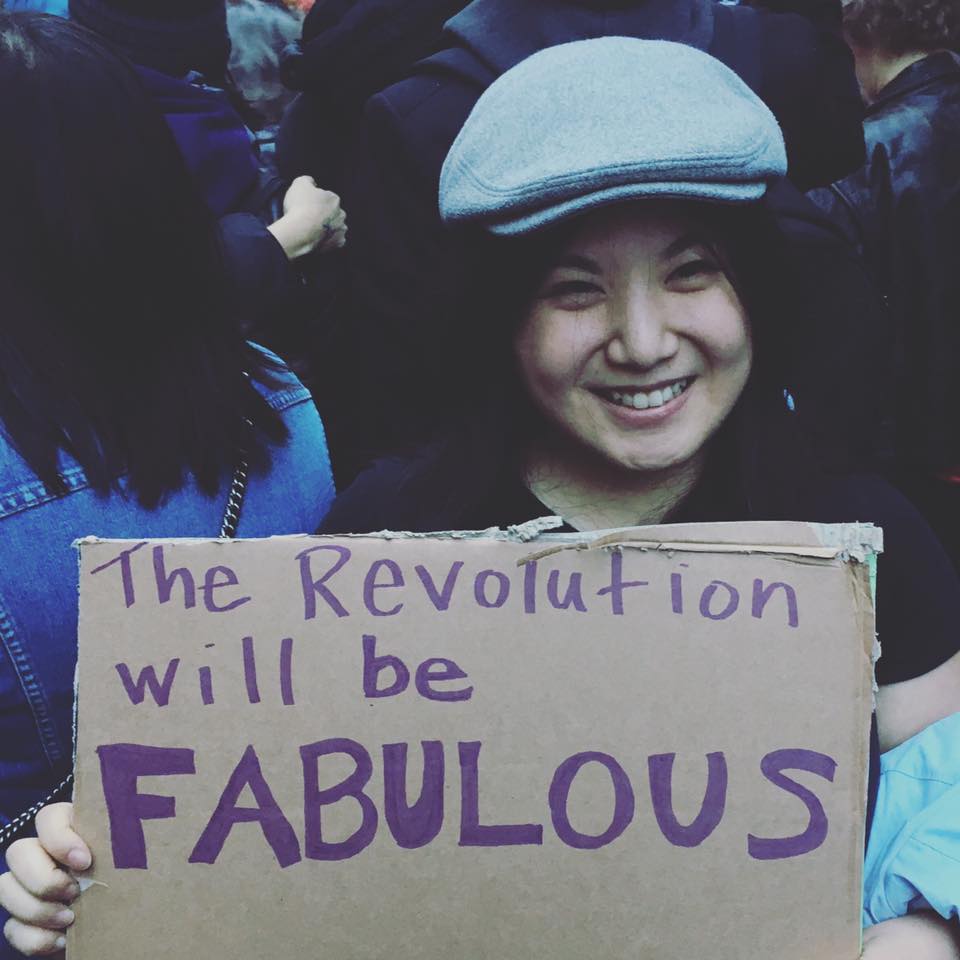 The Revolution
will be
FABULOUS